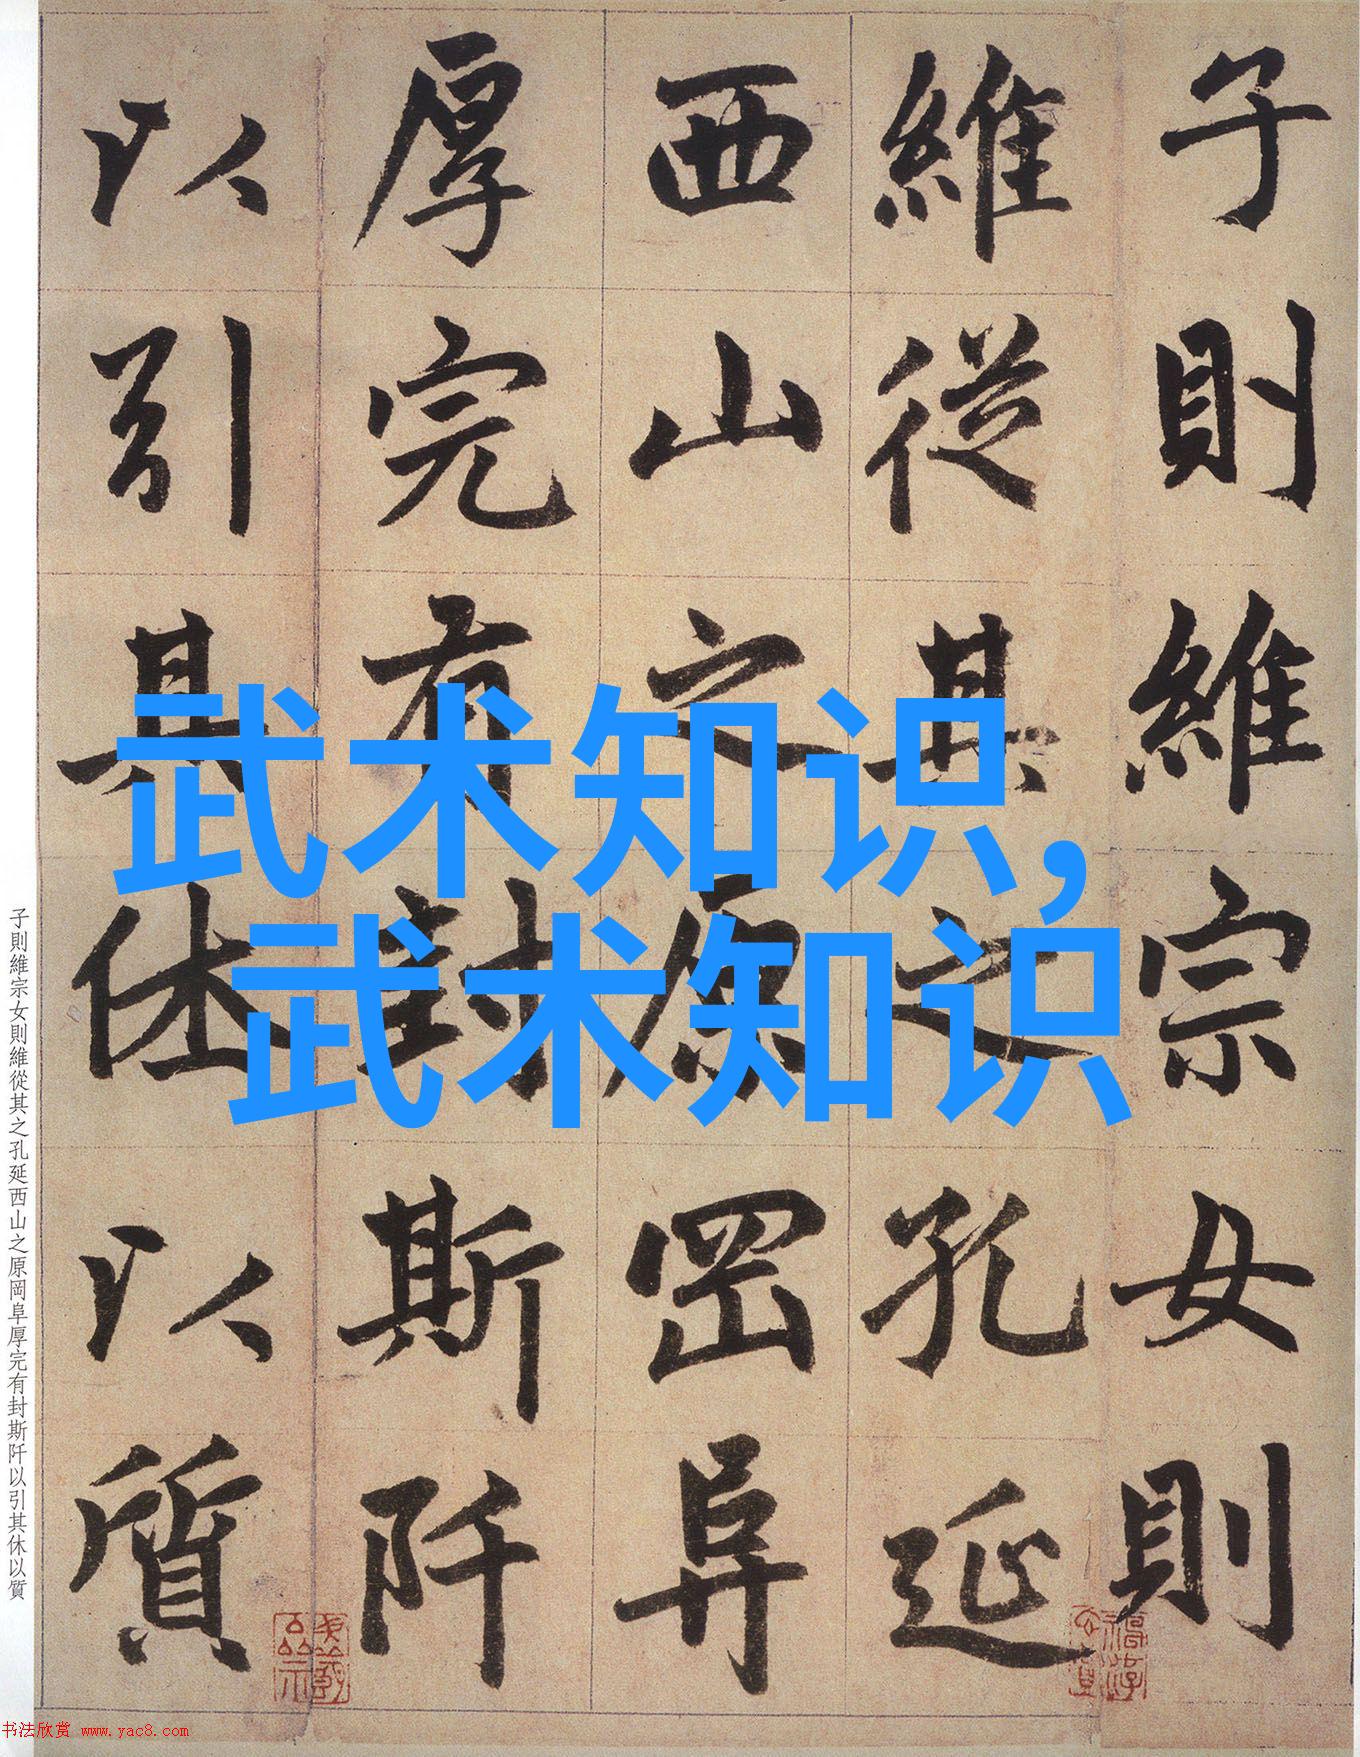 子則維宗女則
維從其之孔延
西山之原罡阜
厚完有封斯阡
以引其休以質
武术知识,
武术知识
子則維宗女則維從其之孔延西山之原岡阜厚完有封斯阡以引其休以質
书法欣赏 www.yac8.com